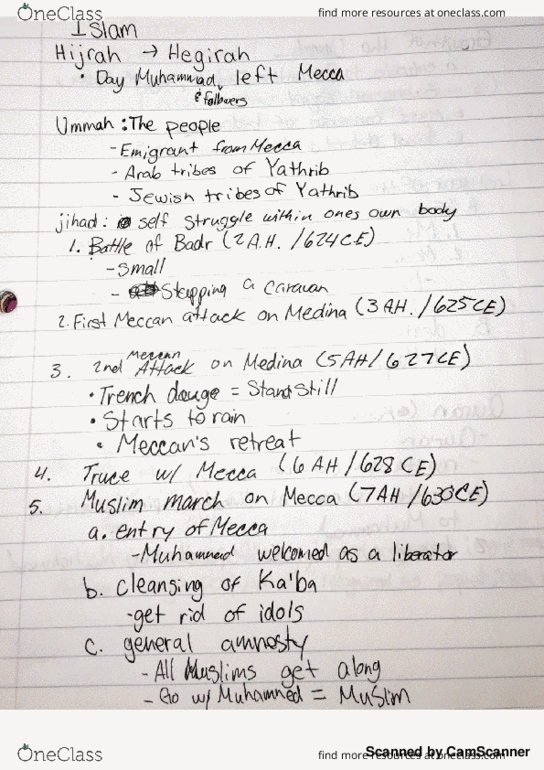 OneClass
find more resources at oneclass.com
Islam
Hijrah → Hegirah
• Day Muhammad, left Mecca
& followers
Ummah : The people
- Emigrant from Mecca
- Arab tribes of Yathrib
- Jewish tribes of Yathrib
jihad : self struggle within ones own body
1. Battle of Badr (2 A.H. /624CE)
- Small
- Stopping a Caravan
2. First Meccan attack on Medina (3 AH. /625CE)
Meccan
3. 2nd Attack on Medina (5AH/627CE)
• Trench = Stand Still
• Starts to rain
• Meccan's retreat
4. Truce w/ Mecca (6 AH /628 CE)
5. Muslim march on Mecca (7AH /630CE)
a. entry of Mecca
- Muhammed welcomed as a liberator
b. cleansing of Ka'ba
- get rid of idols
c. general amnesty
- All Muslims get along
- Go w/ Muhamned = Muslim
OneClass
find more resources at oneclass.com
Scanned by CamScanner